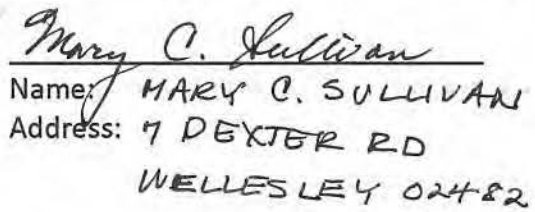 Mary C. Sullivan
Name: MARY C. SULLIVAN
Address: 7 DEXTER RD
WELLESLEY 02482